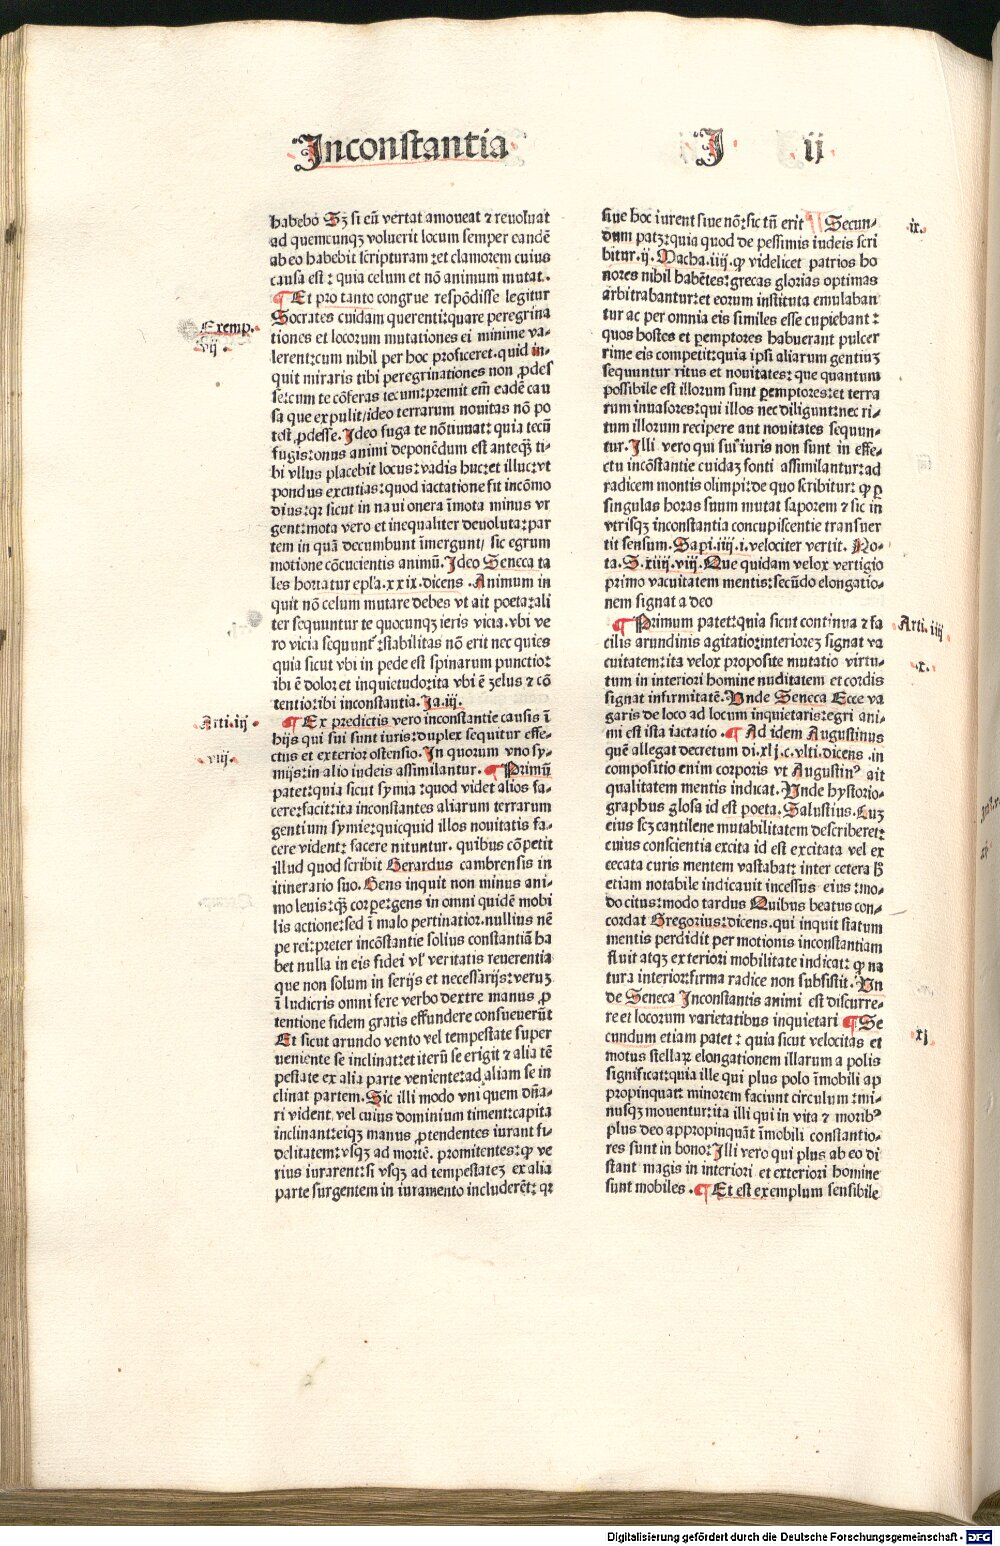 Inconstantia
J ij
habebo Sꝫ si eū vertat amoueat ⁊ reuoluat
ad quemcunqꝫ voluerit locum semper eandē
ab eo habebit scripturam:et clamorem cuius
causa est: quia celum et nō animum mutat.
¶ Et pro tanto congrue respōdisse legitur
Socrates cuidam querenti:quare peregrina
tiones et locorum mutationes ei minime va-
lerent:cum nihil per hoc proficeret.quid in-
quit miraris tibi peregrinationes non ꝓdes
se:cum te cōferas tecum:premit em̄ eadē cau
sa que expulit/ideo terrarum nouitas nō po
test ꝓdesse.Ideo fuga te nō tiuuat: quia tecū
fugis:onus animi deponēdum est anteqꝫ ti-
bi vllus placebit locus:vadis huc:et illuc:vt
pondus excutias:quod iactatione fit incōmo
dius:qꝛ sicut in naui onera īmota minus vr
gent:mota vero et inequaliter deuoluta:par
tem in quā decumbunt īmergunt/ sic egrum
motione cōcucientis animū.Ideo Seneca ta
les hortatur epl̄a.xxix.dicens .Animum in
quit nō celum mutare debes vt ait poeta:ali
ter sequuntur te quocunqꝫ ieris vicia.vbi ve
ro vicia sequunt̄ :stabilitas nō erit nec quies
quia sicut vbi in pede est spinarum punctio:
ibi ē dolor et inquietudo:ita vbi ē zelus ⁊ cō
tentio:ibi inconstantia.Ja.iij.
¶ Ex predictis vero inconstantie causis ī
hijs qui sui sunt iuris:duplex sequitur effe-
ctus et exterior ostensio.In quorum vno sy-
mijs:in alio iudeis assimilantur. ¶Primū
patet:quia sicut symia :quod videt alios fa-
cere:facit:ita inconstantes aliarum terrarum
gentium symie:quicquid illos nouitatis fa-
cere vident: facere nituntur. quibus cōpetit
illud quod scribit Gerardus cambrensis in
itinerario suo. Gens inquit non minus ani-
mo leuis:qꝫ corpe:gens in omni quidē mobi
lis actione:sed ī malo pertinatior.nullius nē
pe rei:preter incōstantie solius constantiā ha
bet nulla in eis fidei vl̓ veritatis reuerentia
que non solum in serijs et necessarijs:veruꝫ
ī ludicris omni fere verbo dextre manus ꝓ
tentione fidem gratis effundere consueuerūt
Et sicut arundo vento vel tempestate super
ueniente se inclinat:et iterū se erigit ⁊ alia tē
pestate ex alia parte veniente:ad aliam se in
clinat partem.Sic illi modo vni quem dn̄a-
ri vident vel cuius dominium timent:capita
inclinant:eiqꝫ manus ꝓtendentes iurant fi-
delitatem:vsqꝫ ad mortē. promitentes:ꝙ ve
rius iurarent:si vsqꝫ ad tempestateꝫ ex alia
parte surgentem in iuramento includerēt: qꝛ
Exemp.
vij
Arti.iij
viij.
siue hoc iurent siue nō:sic tn̄ erit ¶ Secun-
dum patꝫ:quia quod de pessimis iudeis scri
bitur.ij. Macha.iiij.ꝙ videlicet patrios ho
nores nihil habētes:grecas glorias optimas
arbitrabantur:et eorum instituta emulaban
tur ac per omnia eis similes esse cupiebant:
quos hostes et ꝑemptores habuerant pulcer
rime eis competit:quia ipsi aliarum gentiuꝫ
sequuntur ritus et nouitates: que quantum
possibile est illorum sunt ꝑemptores:et terra
rum inuasores:qui illos nec diligunt:nec ri-
tum illorum recipere aut nouitates sequun-
tur.Illi vero qui sui iuris non sunt in effe-
ctu incōstantie cuidaꝫ fonti assimilantur:ad
radicem montis olimpi:de quo scribitur: ꝙ ꝑ
singulas horas suum mutat saporem ⁊ sic in
vtrisqꝫ inconstantia concupiscentie transuer
tit sensum.Sapi.iiij.i.velociter vertit. No-
ta.S.xiiij.viij.Que quidam velox vertigio
primo vacuitatem mentis:secūdo elongatio-
nem signat a deo
¶ Primum patet:quia sicut continua ⁊ fa
cilis arundinis agitatio:interioreꝫ signat va
cuitatem:ita velox proposite mutatio virtu-
tum in interiori homine nuditatem et cordis
signat infirmitatē.Vnde Seneca Ecce va
garis de loco ad locum inquietaris:egri ani-
mi est ista iactatio . ¶ Ad idem Augustinus
quē allegat decretum di.xlj.c.vlti.dicens .in
compositio enim corporis vt Augustin⁹ ait
qualitatem mentis indicat. Vnde hystorio-
graphus glosa id est poeta.Salustius.Luꝫ
eius scꝫ cantilene mutabilitatem describeret:
cuius conscientia excita id est excitata vel ex
cecata curis mentem vastabat: inter cetera h̓
etiam notabile indicauit incessus eius :mo-
do citus:modo tardus Quibus beatus con-
cordat Gregorius:dicens.qui inquit statum
mentis perdidit per motionis inconstantiam
fluit atqꝫ exteriori mobilitate indicat: ꝙ na
tura interior:firma radice non subsistit.Vn
de Seneca Inconstantis animi est discurre-
re et locorum varietatibus inquietari ¶Se
cundum etiam patet : quia sicut velocitas et
motus stellaꝝ elongationem illarum a polis
significat:quia ille qui plus polo īmobili ap
propinquat: minorem faciunt circulum :mi-
nusqꝫ mouentur:ita illi qui in vita ⁊ morib⁹
plus deo appropinquāt īmobili constantio-
res sunt in bono:Illi vero qui plus ab eo di
stant magis in interiori et exteriori homine
sunt mobiles . ¶ Et est exemplum sensibile
ix.
Arti.iiij
x.
xj
Digitalisierung gefördert durch die Deutsche Forschungsgemeinschaft - DFG